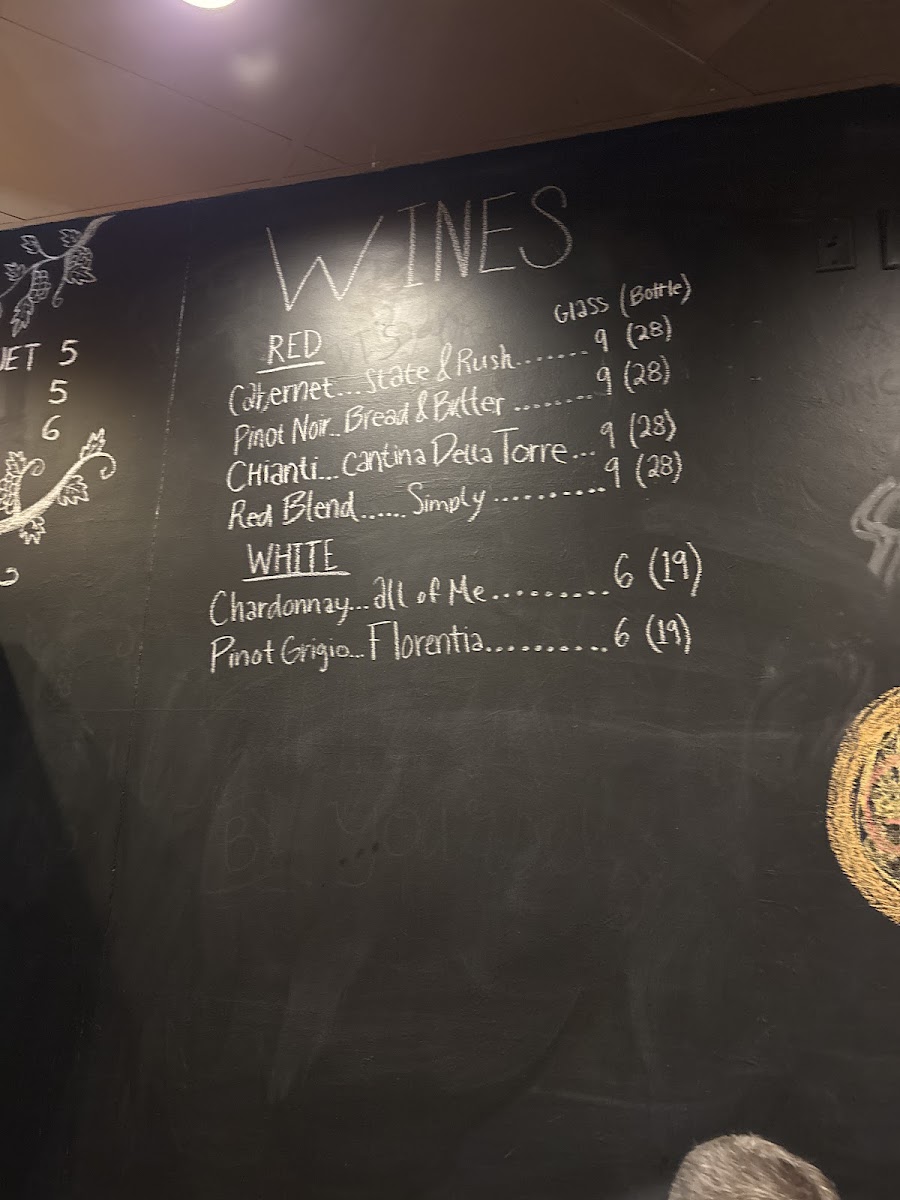 WINES
Glass (Bottle)
RED
Cabernet...State & Rush.......9 (28)
Pinot Noir..Bread & Butter ........9 (28)
CHianti...Cantina Della Torre...9 (28)
Red Blend......Simply..........9 (28)
WHITE
Chardonnay...all of Me.........6 (19)
Pinot Grigio...Florentia..........6 (19)
5
5
6